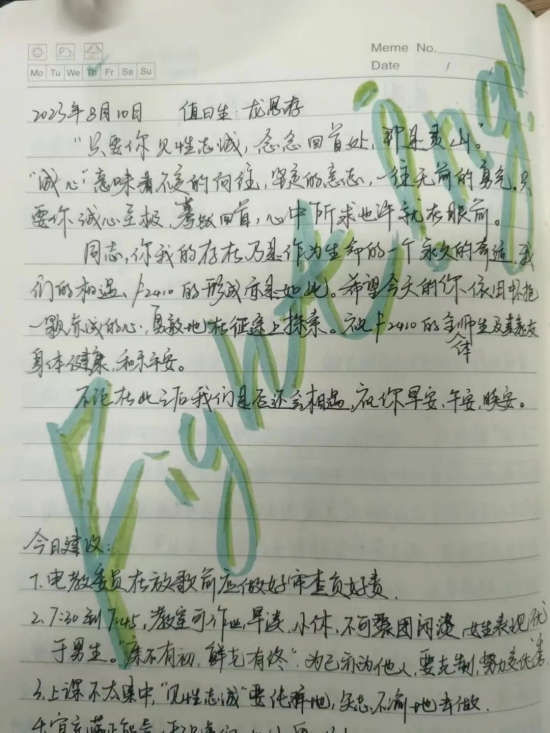 Meme No.
Mo Tu We Th Fr Sa Su
Date /
2023年8月10日 值日生: 龙思存
“只要你见性志诚,念念回首处,即是灵山。”
“诚心”意味着不变的向往,坚定的意志,一往无前的勇充。只
要你诚心至极,蓦然回首,心中所求也许就在眼前。
同志,你我的存在乃是作为生命的一个永久的奇迹,我
们的相遇、2410的形成亦是如此。希望今天的你依旧怀抱
一颗赤诚的心,勇敢地在征途上探索。祝2410的全体师生及其家长
身体健康,和乐平安。
不论在此之后我们是否还会相遇,祝你早安、午安、晚安。
Right ing!
今日建议:
1.电教委员在放歌前应做好审查负好责.
2.7:30到7:45,教室可作业,早读,小休,不可聚团闲谈,女生表现优
于男生。“靡不有初,鲜克有终”为己亦为他人,要克制,努力变优
3.上课不太集中,“见性志诚”要诠释地,矢志不渝地去做.
4.宜充满正能量,